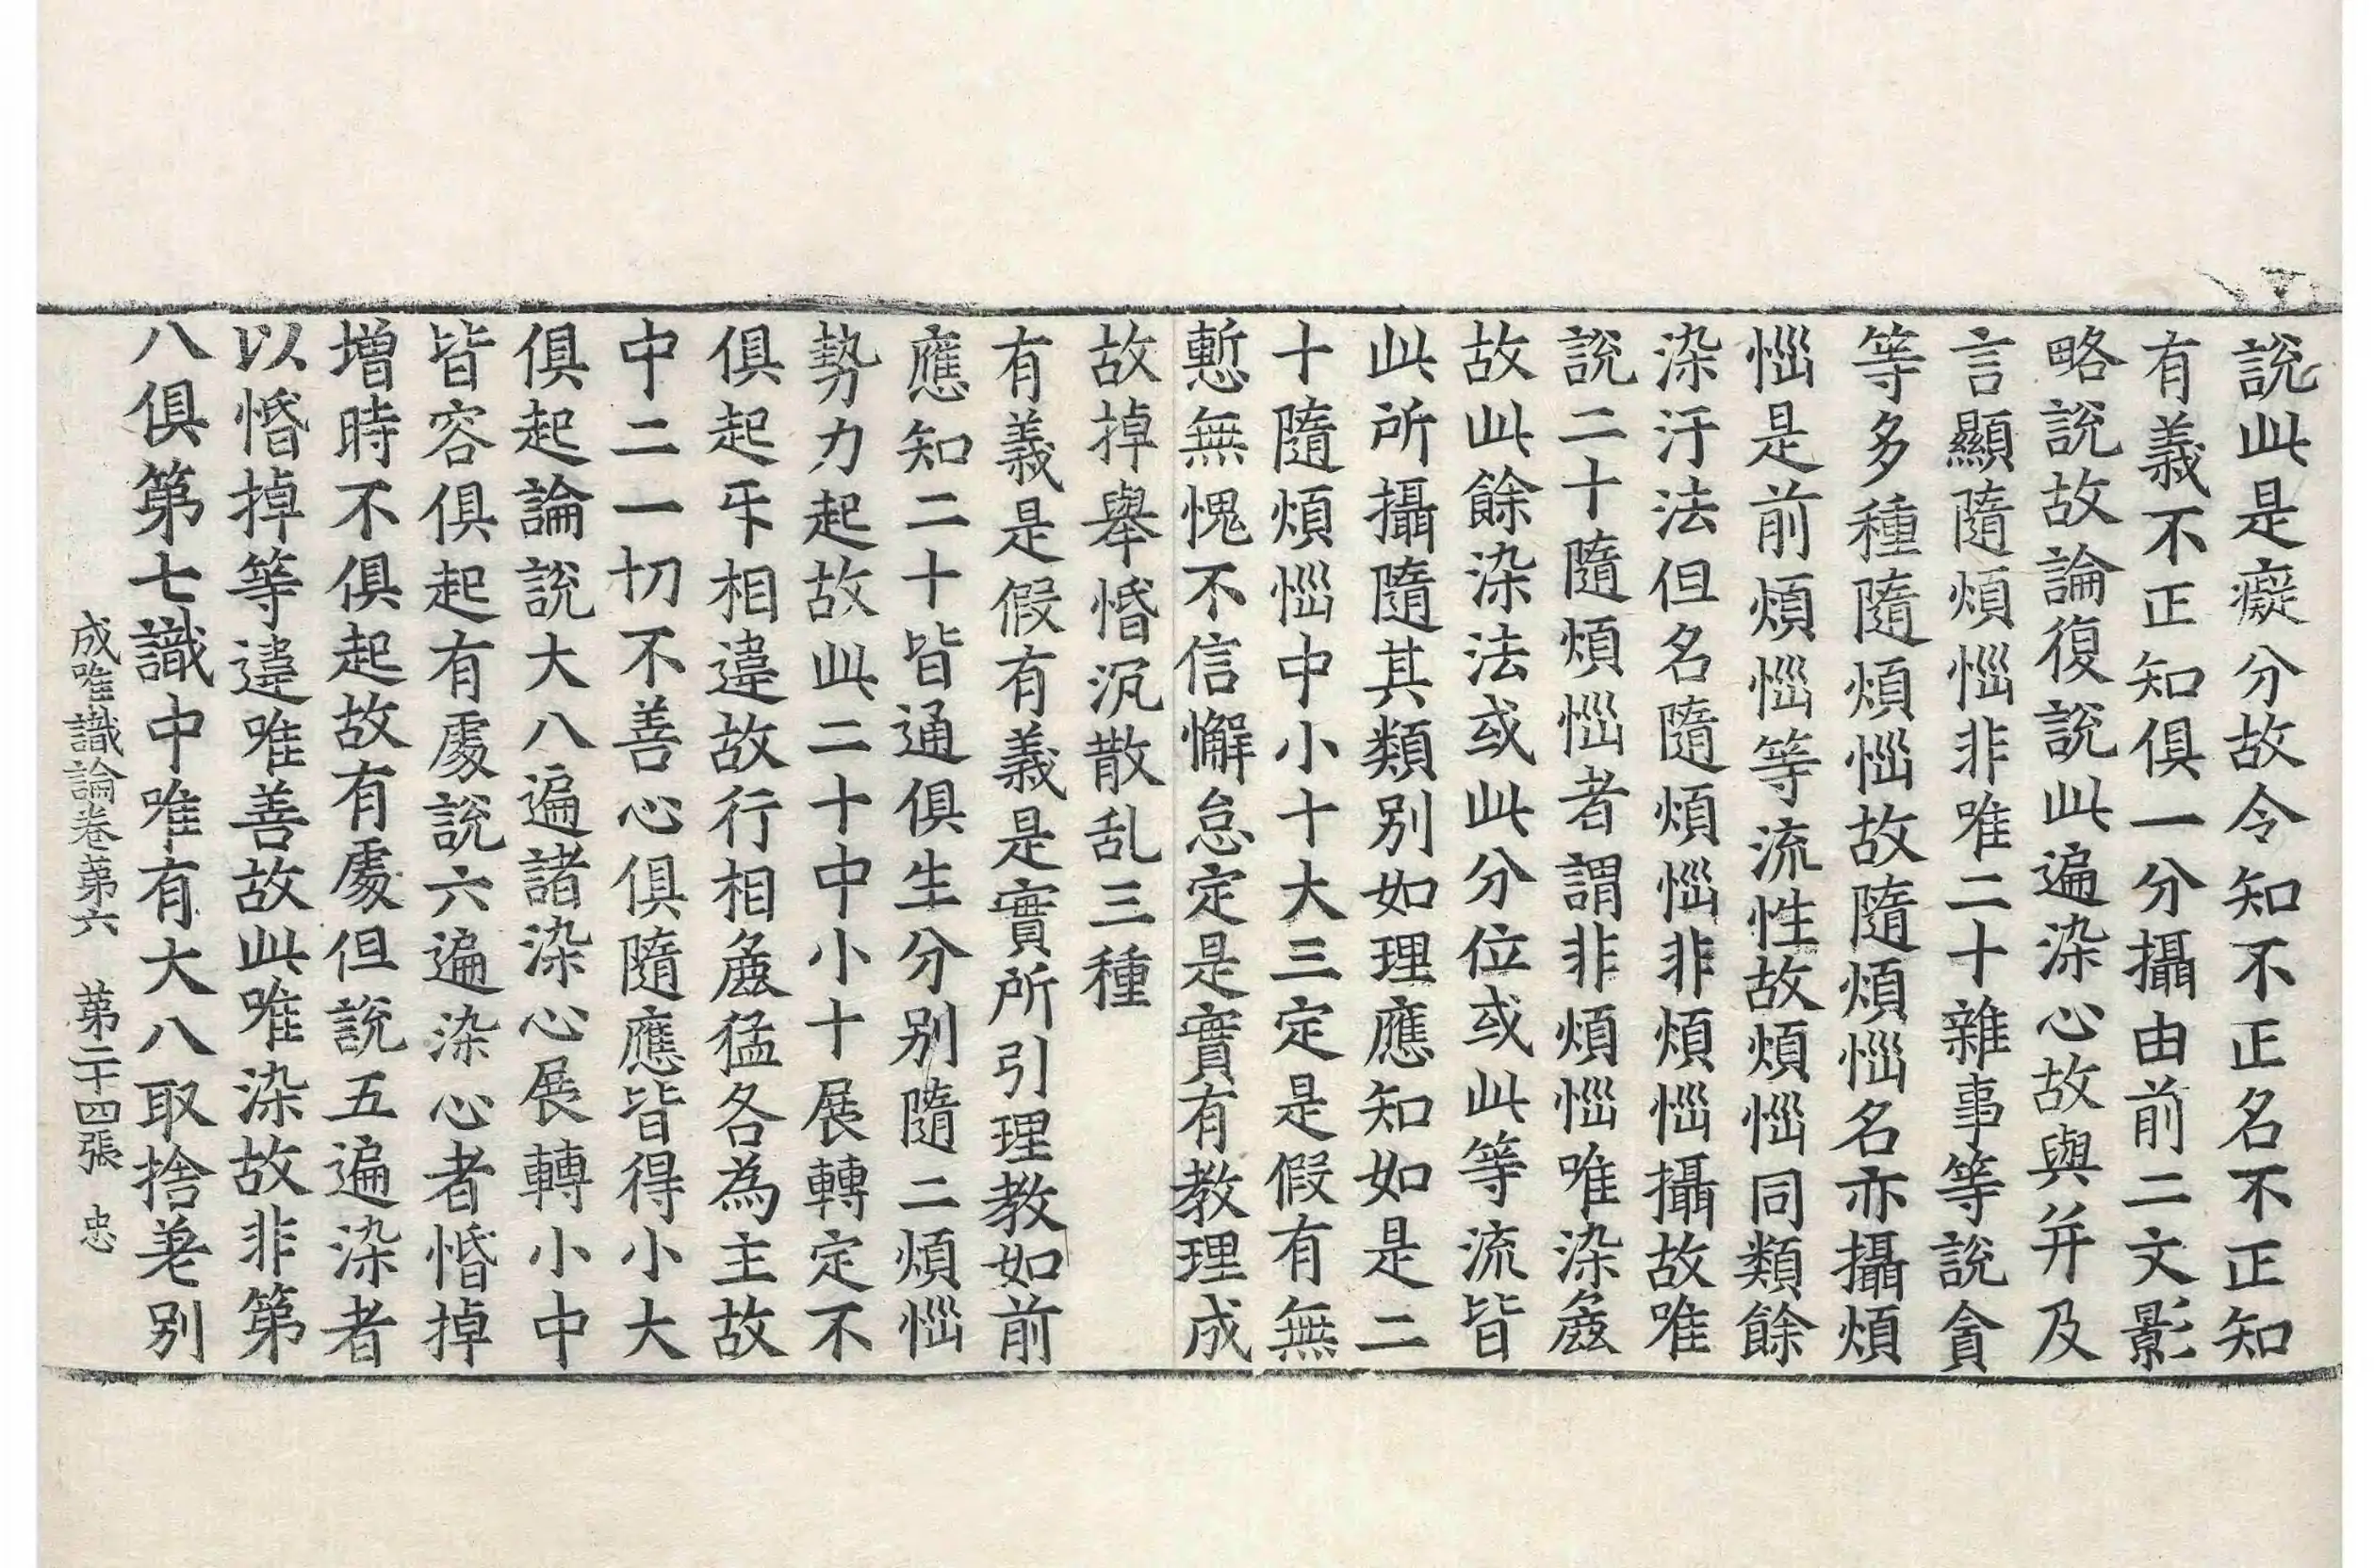 說此是癡分故令知不正名不正知
有義不正知俱一分攝由前二文影
略說故論復說此遍染心故與并及
言顯隨煩惱非唯二十雜事等說貪
等多種隨煩惱故隨煩惱名亦攝煩
惱是前煩惱等流性故煩惱同類餘
染汙法但名隨煩惱非煩惱攝故唯
說二十隨煩惱者謂非煩惱唯染麁
故此餘染法或此分位或此等流皆
此所攝隨其類別如理應知如是二
十隨煩惱中小十大三定是假有無
慙無愧不信懈怠定是實有教理成
故掉舉惛沉散乱三種
有義是假有義是實所引理教如前
應知二十皆通俱生分別隨二煩惱
勢力起故此二十中小十展轉定不
俱起㸦相違故行相麁猛各為主故
中二一切不善心俱隨應皆得小大
俱起論說大八遍諸染心展轉小中
皆容俱起有處說六遍染心者惛掉
增時不俱起故有處但說五遍染者
以惛掉等違唯善故此唯染故非第
八俱第七識中唯有大八取捨差別
成唯識論卷第六　第二十四張　忠